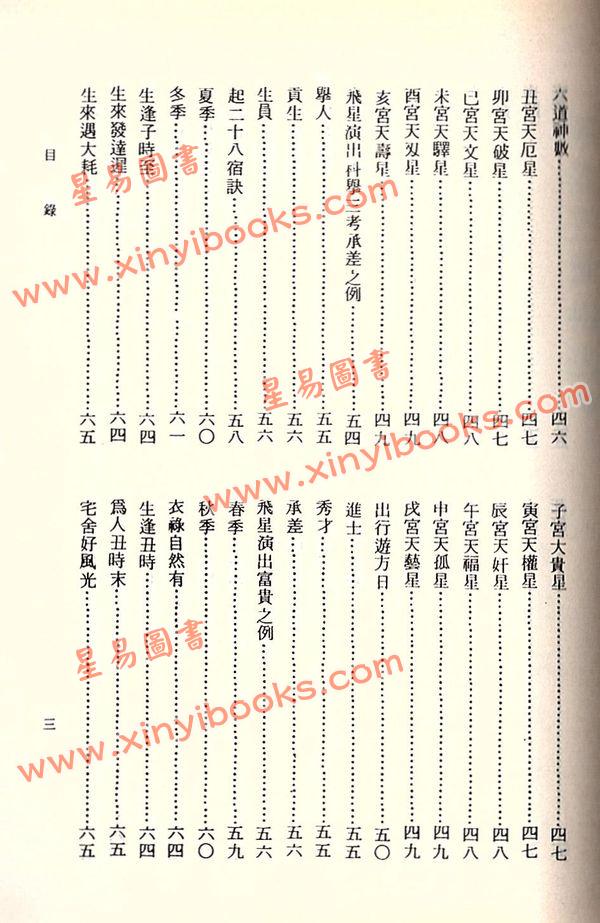 六道神數……四六
子宮大貴星……四七
丑宮天厄星……四七
寅宮天權星……四七
卯宮天破星……四七
辰宮天奸星……四八
巳宮天文星……四八
午宮天福星……四八
未宮天驛星……四八
申宮天孤星……四九
酉宮天刄星……四九
戌宮天藝星……四九
亥宮天壽星……四九
出行遊方日……五〇
飛星演出科舉二考承差之例……五四
進士……五五
舉人……五五
秀才……五五
貢生……五六
承差……五六
生員……五六
飛星演出富貴之例……五六
起二十八宿訣……五八
春季……五九
夏季……六〇
秋季……六〇
冬季……六一
衣祿自然有……六四
生逢子時至……六四
生逢丑時……六四
生來發達遲……六四
爲人丑時末……六五
生來遇大耗……六五
宅舍好風光……六五
目錄
三
星易圖書
www.xinyibooks.com
星易圖書
www.xinyibooks.com
星易圖書
www.xinyibooks.com